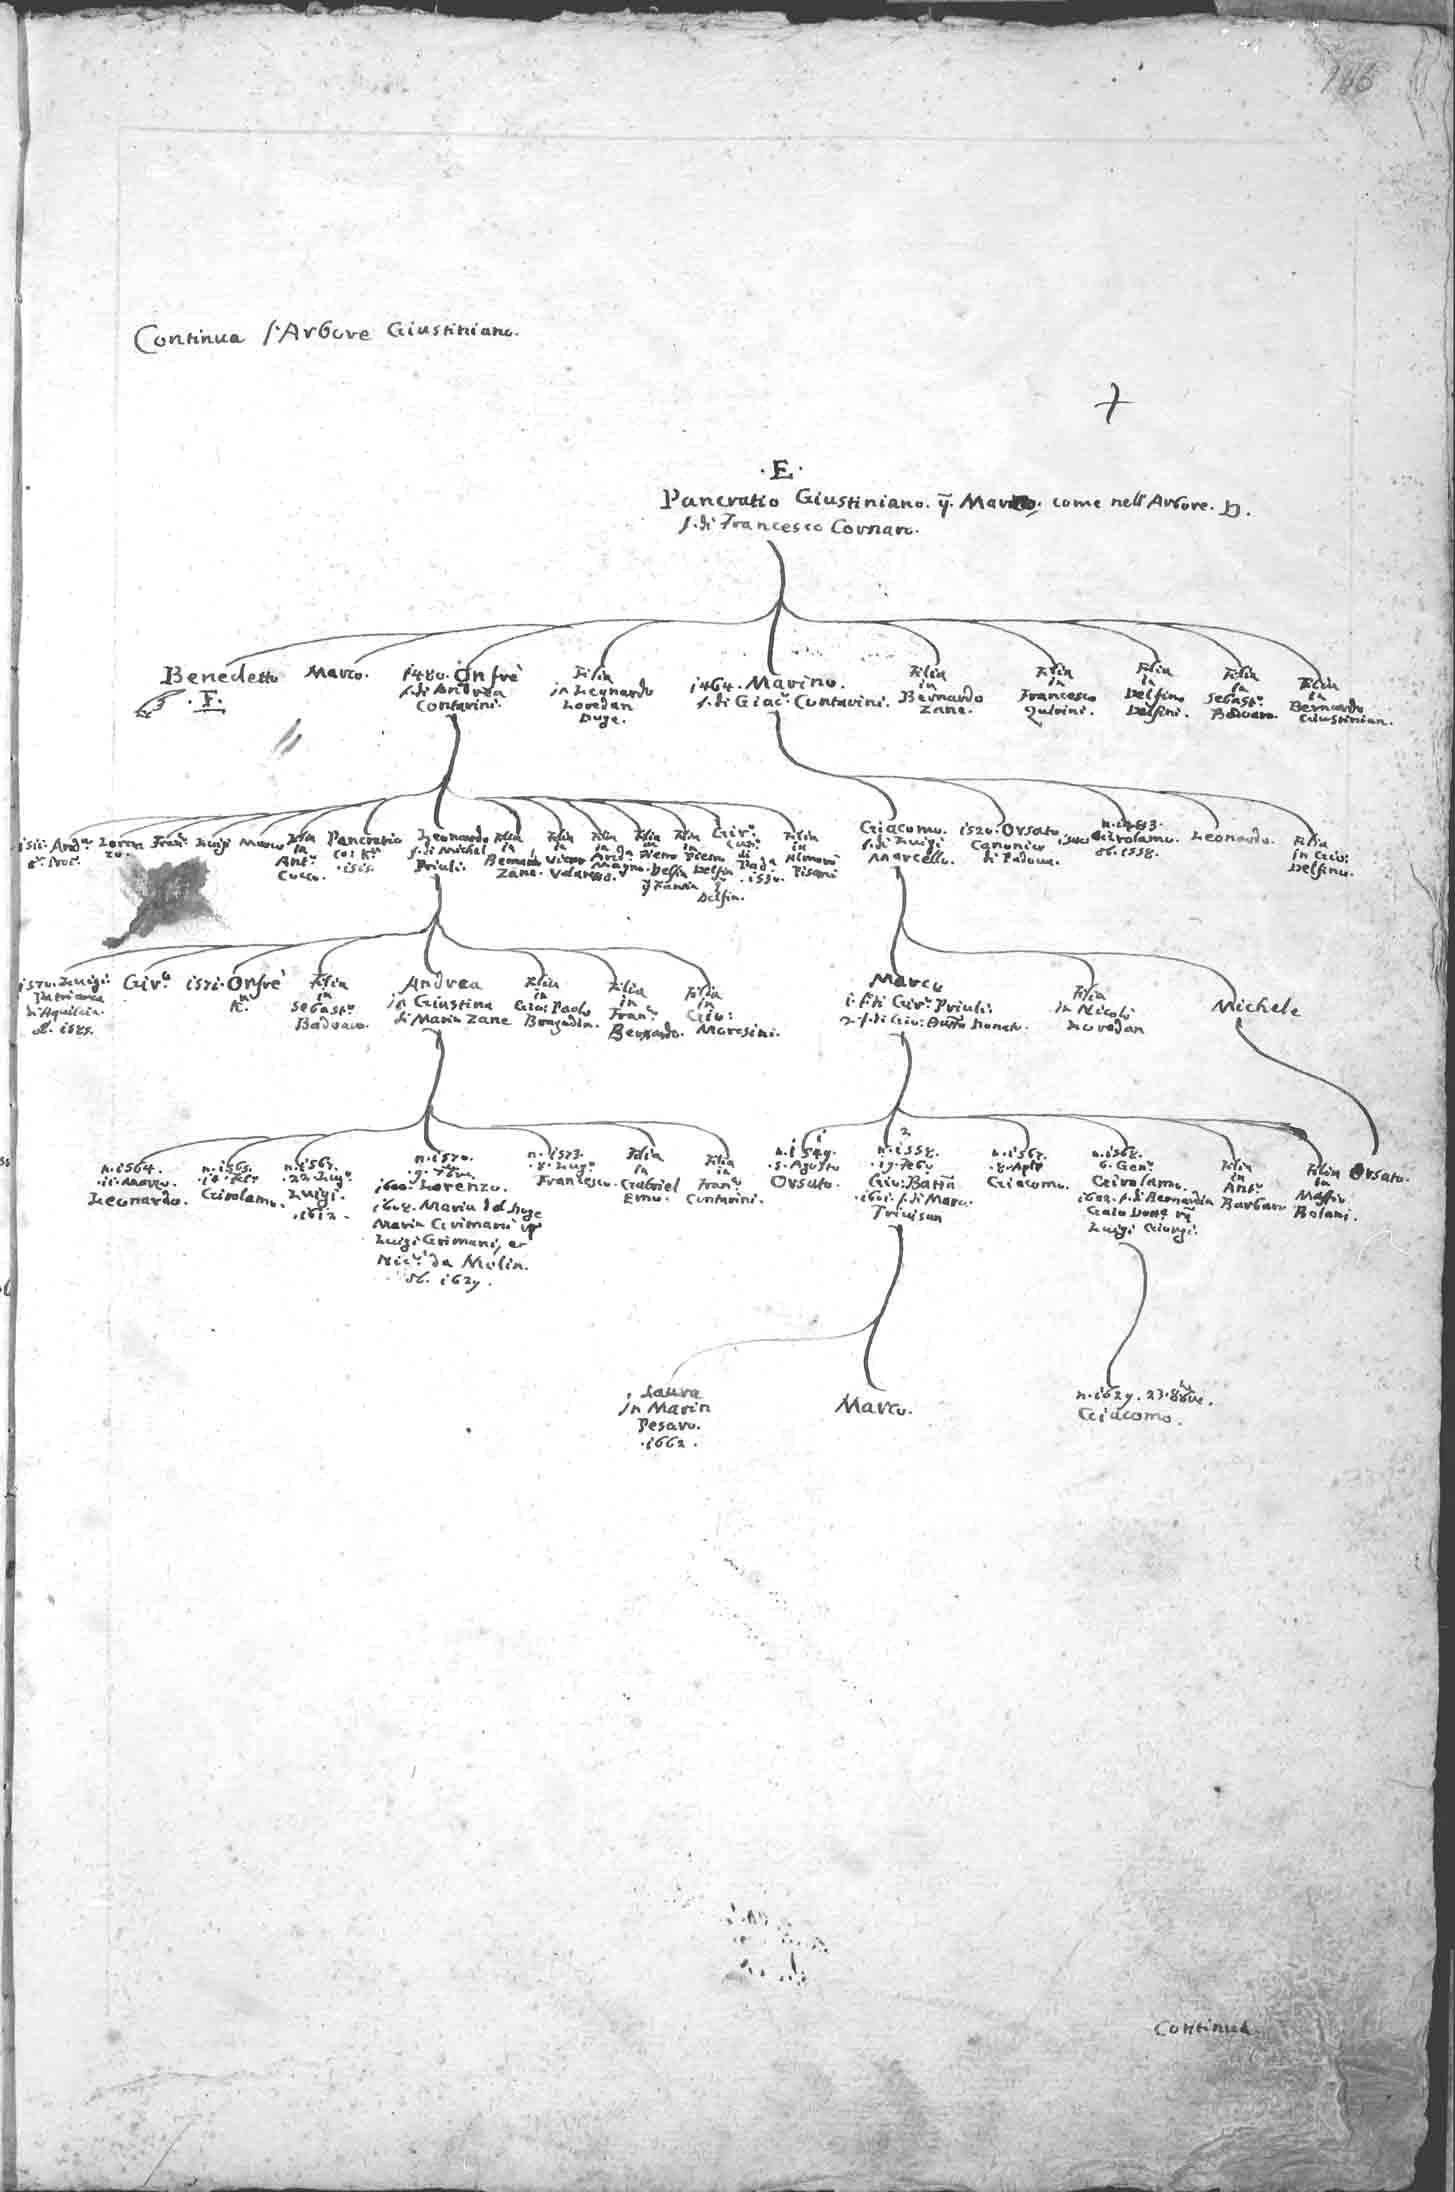 Continua l'Arbore Giustiniano.
.E.
Pancratio Giustiniano. q. Marco. come nell'Arbore. D.
f. di Francesco Cornaro.
Benedetto
.F.
Marco.
1480. Onfrè
f. di Andrea
Contarini.
Filia
in Leonardo
Loredan
Duge.
1464. Marino.
f. di Giac.º Contarini.
Filia
in
Bernardo
Zane.
Filia
in
Francesco
Quirini.
Filia
in
Delfino
Delfini.
Filia
in
Sebast.º
Badoaro.
Filia
in
Bernardo
Giustinian.
Loren
zo.
Fran.º
Luigi
Marco
Filia
in
Ant.º
Cocco.
Pancratio
Kr
.1515.
Leonardo
f. di Michel
Priuli.
Filia
in
Bernardo
Zane.
Filia
in
Victor
Valaresso.
Filia
in
And.ª
Magno.
Filia
in
Piero
Delfin
Filia
in
Piero
Delfin
q.
Delfin.
Gir.º
di
Pad.ª
.1530.
Filia
in
Almorò
Pisani
Giacomo.
f. di Luigi
Marcello.
1520. Orsato
Canonico
di Padoua.
n. 1483.
Girolamo.
ob. 1558.
Leonardo.
Filia
in Gio:
Delfino.
1570. Luigi
Patriarca
di Aquileia.
ob. 1585.
Gir.º
1571. Onfrè
Kr.
Filia
in
Sebast.º
Badoaro.
Andrea
in Giustina
di Marin Zane
Filia
in
Gio: Paolo
Bragadin.
Filia
in
Fran.º
Bernardo.
Filia
in
Gio:
Moresini.
Marco
1. f. di Gir.º Priuli.
2. f. di Gio: Batta Donato.
Filia
in Nicolò
Loredan
Michele
n. 1564.
.11. Marzo.
Leonardo.
n. 1565.
Girolamo.
n. 1567.
.22. Lug.º
Luigi.
.1612.
n. 1570.
.9. 7bre.
1600. Lorenzo.
1608. Maria del Duge
Marin Grimani
Luigi Grimani, et
Nic.º da Molin.
ob. 1629.
n. 1573.
.8. Lug.º
Francesco.
Filia
in
Gabriel
Emo.
Filia
in
Fran.º
Contarini.
1
n. 1549.
.5. Agosto
Orsato.
2
n. 1558.
.19. Feb.º
Gio: Batta
.1601. f. di Marco
Triuisan
n. 1567.
.8. Aple
Giacomo.
n. 1568.
6. Gen.º
Girolamo.
1602. f. di Bernardin
Luigi Giorgi.
Filia
in
Ant.º
Barbaro
Filia
in
Maffio
Bolani.
Orsato.
Laura
in Marin
Pesaro.
.1662.
Marco.
n. 1629. 23. 8bre.
Giacomo.
Continua.